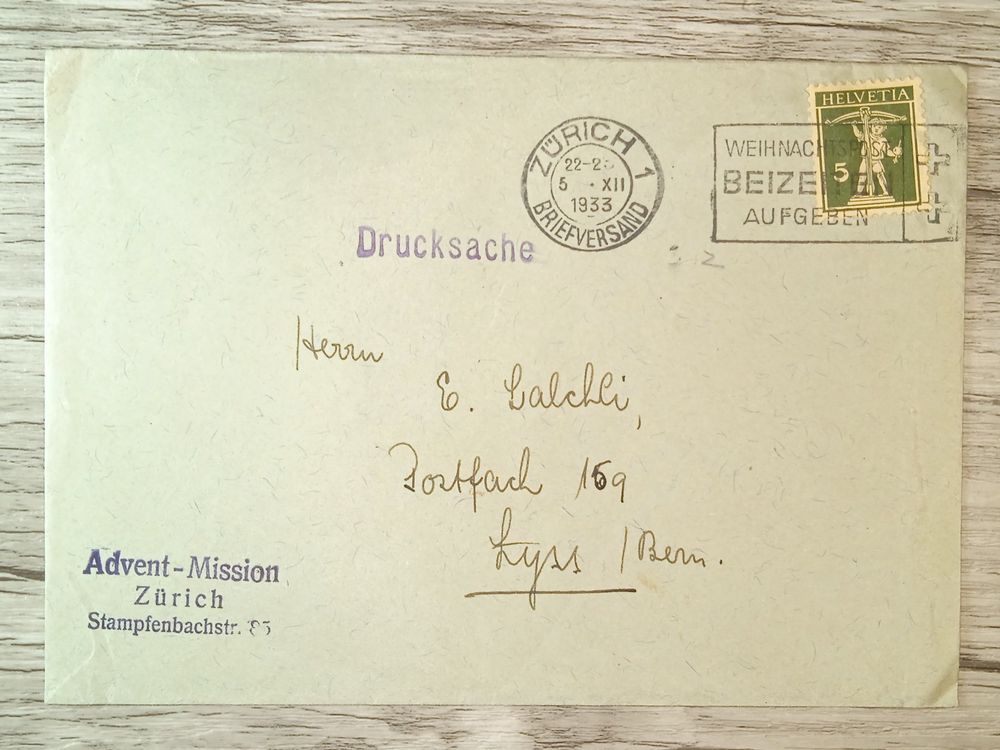 HELVETIA
5
ZÜRICH 1
22-2
5 . XII
1933
BRIEFVERSAND
WEIHNACHTSPOST
BEIZEITEN
AUFGEBEN
Drucksache
Herrn
E. Lalchli,
Postfach 169
Lyss / Bern.
Advent-Mission
Zürich
Stampfenbachstr.